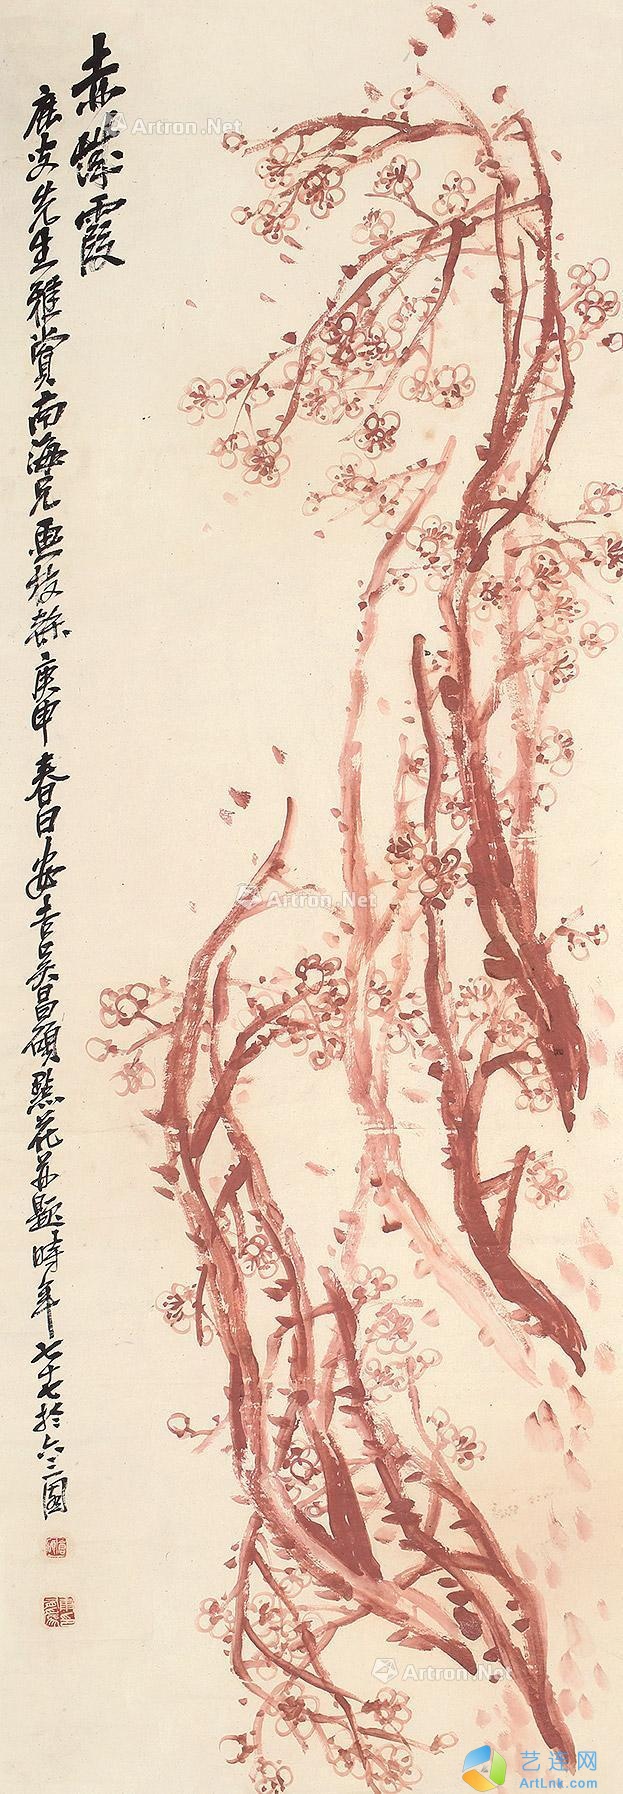 赤城霞
鹿叟先生雅赏南海兄画枝榦庚申春日安吉吴昌硕點花并题時年七十七於六三園
Artron.Net
Artron.Net
Artron.Net
艺连网
ArtLnk.Com